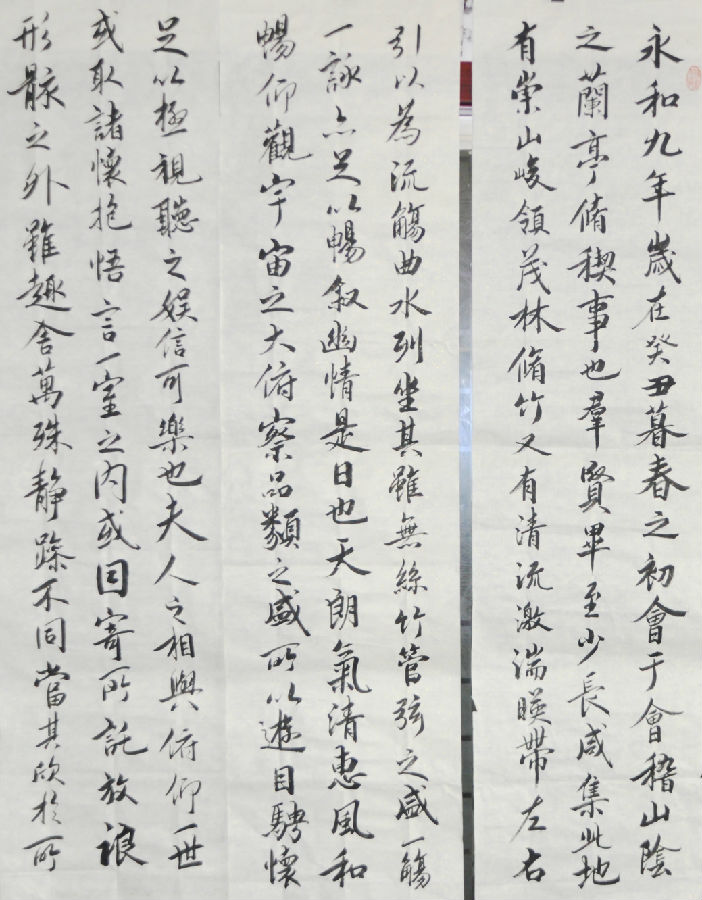 永和九年歲在癸丑暮春之初會于會稽山陰
之蘭亭脩稧事也羣賢畢至少長咸集此地
有崇山峻領茂林脩竹又有清流激湍暎帶左右
引以為流觴曲水列坐其雖無絲竹管弦之盛一觴
一詠亦足以暢叙幽情是日也天朗氣清惠風和
暢仰觀宇宙之大俯察品類之盛所以遊目騁懷
足以極視聽之娛信可樂也夫人之相與俯仰一世
或取諸懷抱悟言一室之內或因寄所託放浪
形骸之外雖趣舍萬殊靜躁不同當其欣於所